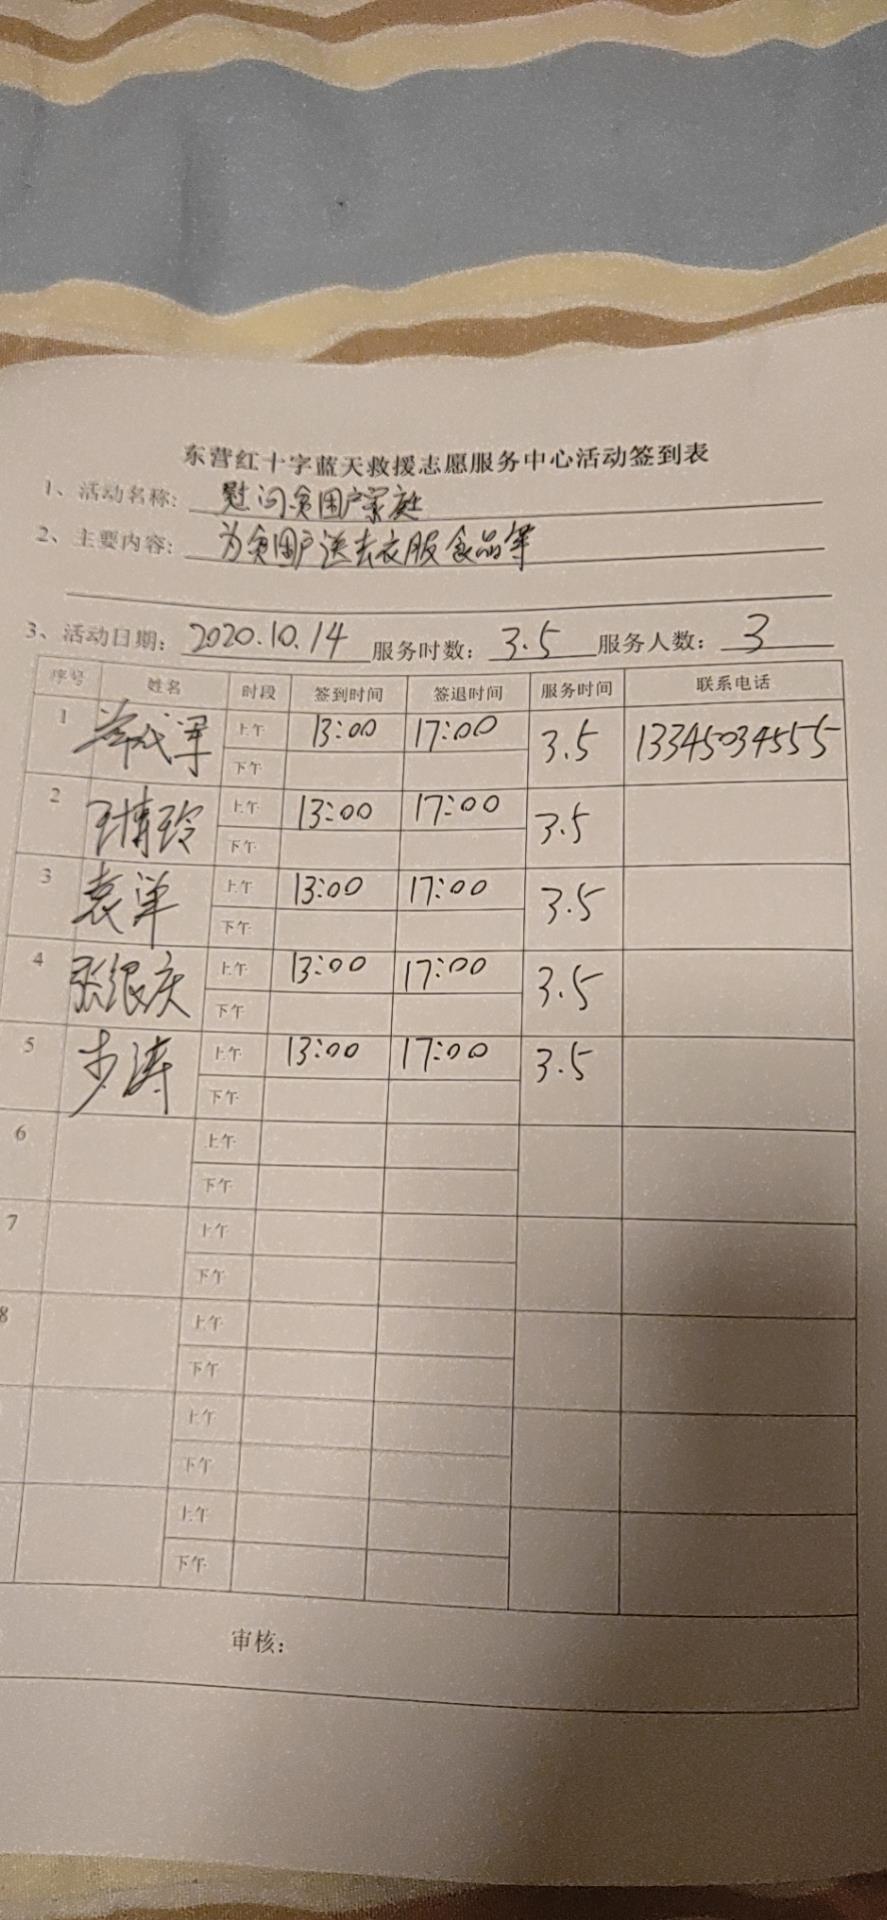 东营红十字蓝天救援志愿服务中心活动签到表
1、活动名称: 慰问贫困户家庭
2、主要内容: 为贫困户送去衣服食品等
3、活动日期: 2020.10.14 服务时数: 3.5 服务人数: 3
序号 姓名 时段 签到时间 签退时间 服务时间 联系电话
1 上午 13:00 17:00 3.5 13345034555
下午
2 上午 13:00 17:00 3.5
下午
3 袁单 上午 13:00 17:00 3.5
下午
4 张银庆 上午 13:00 17:00 3.5
下午
5 步涛 上午 13:00 17:00 3.5
下午
6 上午
下午
7 上午
下午
8 上午
下午
上午
下午
上午
下午
审核: